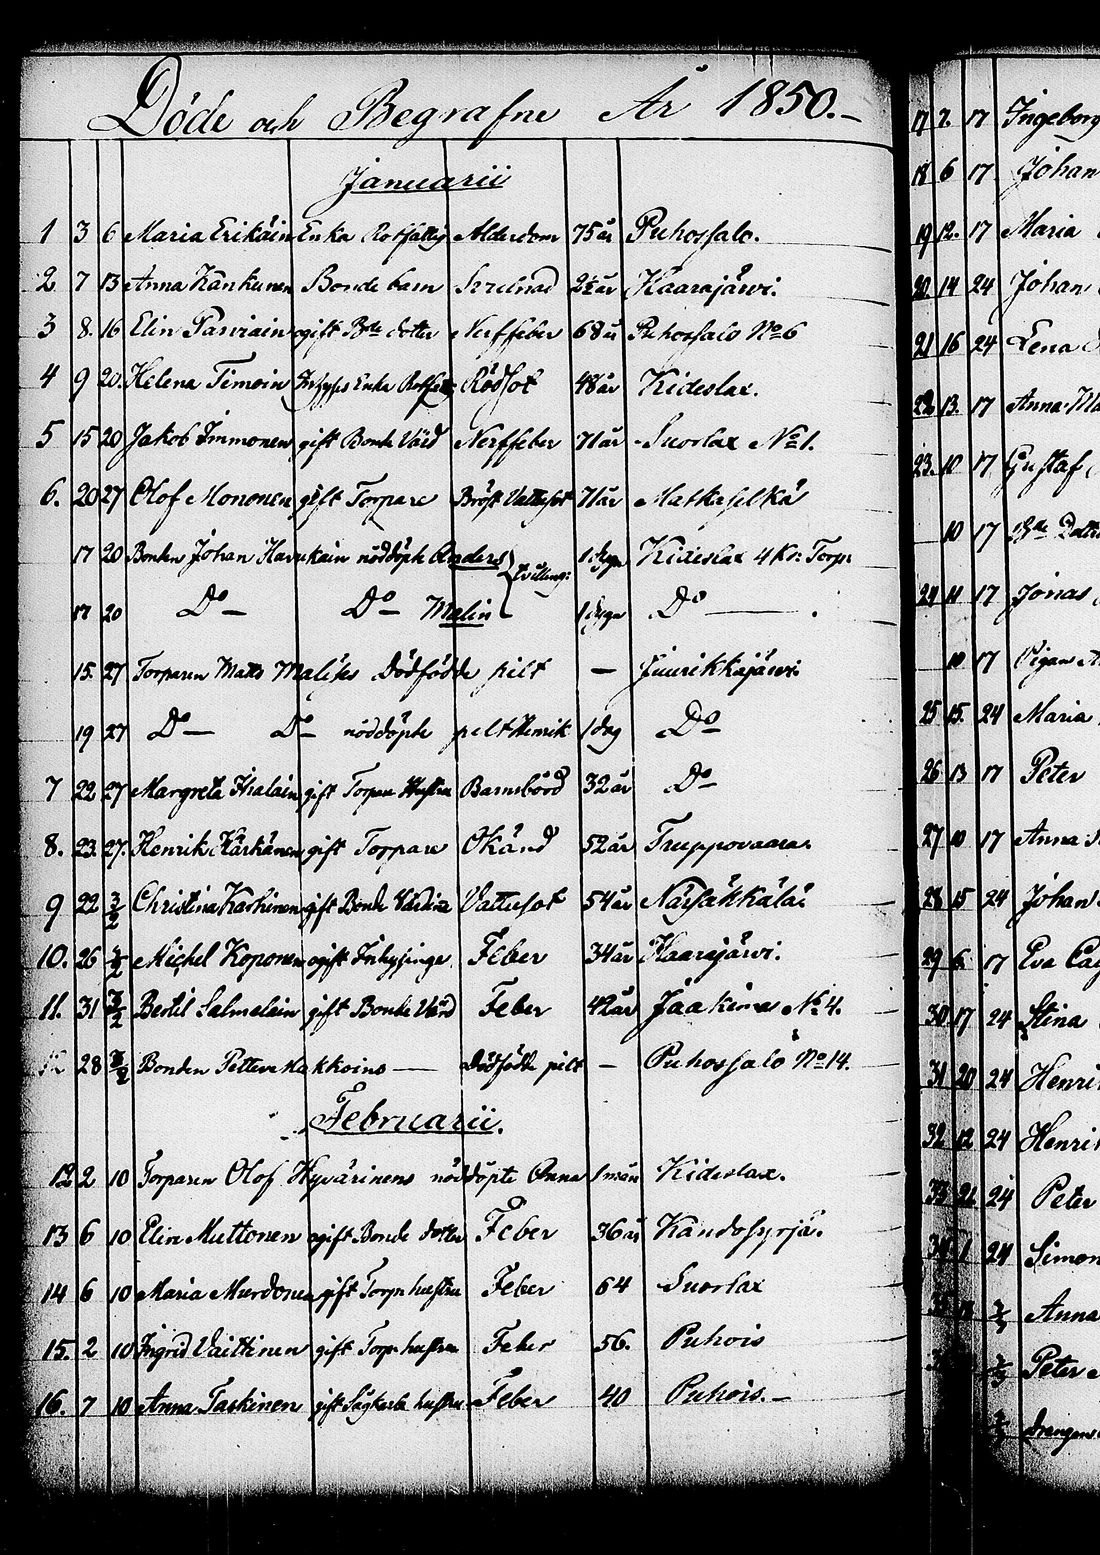 Döde och Begrafne År 1850.-
Januarii
1 3 6 Maria Erikäin Enka Rotfattig Ålderdom 75 år Puhossalo.
2 7 13 Anna Kankunen Bonde barn 2½ år Kaarajärvi.
3 8. 16 Elin Parviain ogift Bde dotter Nerffeber 68 år Puhossalo No 6
4 9 20. Helena Timoin Enka Rödsot 48 år Kideslax.
5 15 20 Jakob Immonen gift Bonde Värd Nerffeber 71 år Suorlax No 1.
6. 20 27 Olof Mononen gift Torpare Bröst Vattusot 71 år Matkaselkä
17 20 Bonden Johan Havukain nöddöpte Anders 1 dygn Kideslax 4 Kr: Torp.
tvilling:
17 20 Do — Do — Malin 1 dygn Do —
15. 27 Torparen Matts Dödfödde pilt — Juurikkajärvi.
19 27 Do — Do nöddöpte pilt Henrik 1 dag Do
7 22 27 Margreta Hialain gift Torpare Hustru Barnsbörd 32 år Do
8. 23. 27. Henrik Kärkänen gift Torpare Okänd 52 år Truppovaara.
9 22 3/2 Christina Karhinen gift Bonde Värdina Vattusot 54 år Näsäkkälä.
10. 26 3/2 Michel Koponen ogift Inhysinge Feber 34 år Kaarajärvi.
11. 31 3/2 Bertil Salmelain gift Bonde Värd Feber 42 år Jaakima No 4.
28 3/2 Bonden Petter Makkoins — Dödfödde pilt — Puhossalo No 14.
Februarii.
12 2 10 Torparen Olof Hyvärinens nöddöpte Anna 1 mån Kideslax.
13 6 10 Elin Muttonen ogift Bonde dotter Feber 36 år Kandosyrjä.
14 6 10 Maria Murdonen gift Torp hustru Feber 64 Suorlax
15. 2 10 Ingrid Vaittinen gift Torp hustru Feber 56. Puhois
16. 7 10 Anna Taskinen gift Sågkarls hustru Feber 40 Puhois.-
17 7. 17 Ingeborg
18 6 17 Johan
19 12. 17 Maria
20 14 24 Johan
21 16 24 Lena
22 13. 17 Anna Ma
23. 10 17 Gustaf
10 17 Bde Dott
24 11 17 Jonas
10 17 Pigan
25 15. 24 Maria
26 13 17 Peter
27 10 17 Anna
28 15 24 Johan
29 6. 17 Eva Ca
30 17 24 Stina
31 20 24 Henri
32 12 24 Henri
33 21 24 Peter
34 24 Simon
35 Anna
Peter
drengen